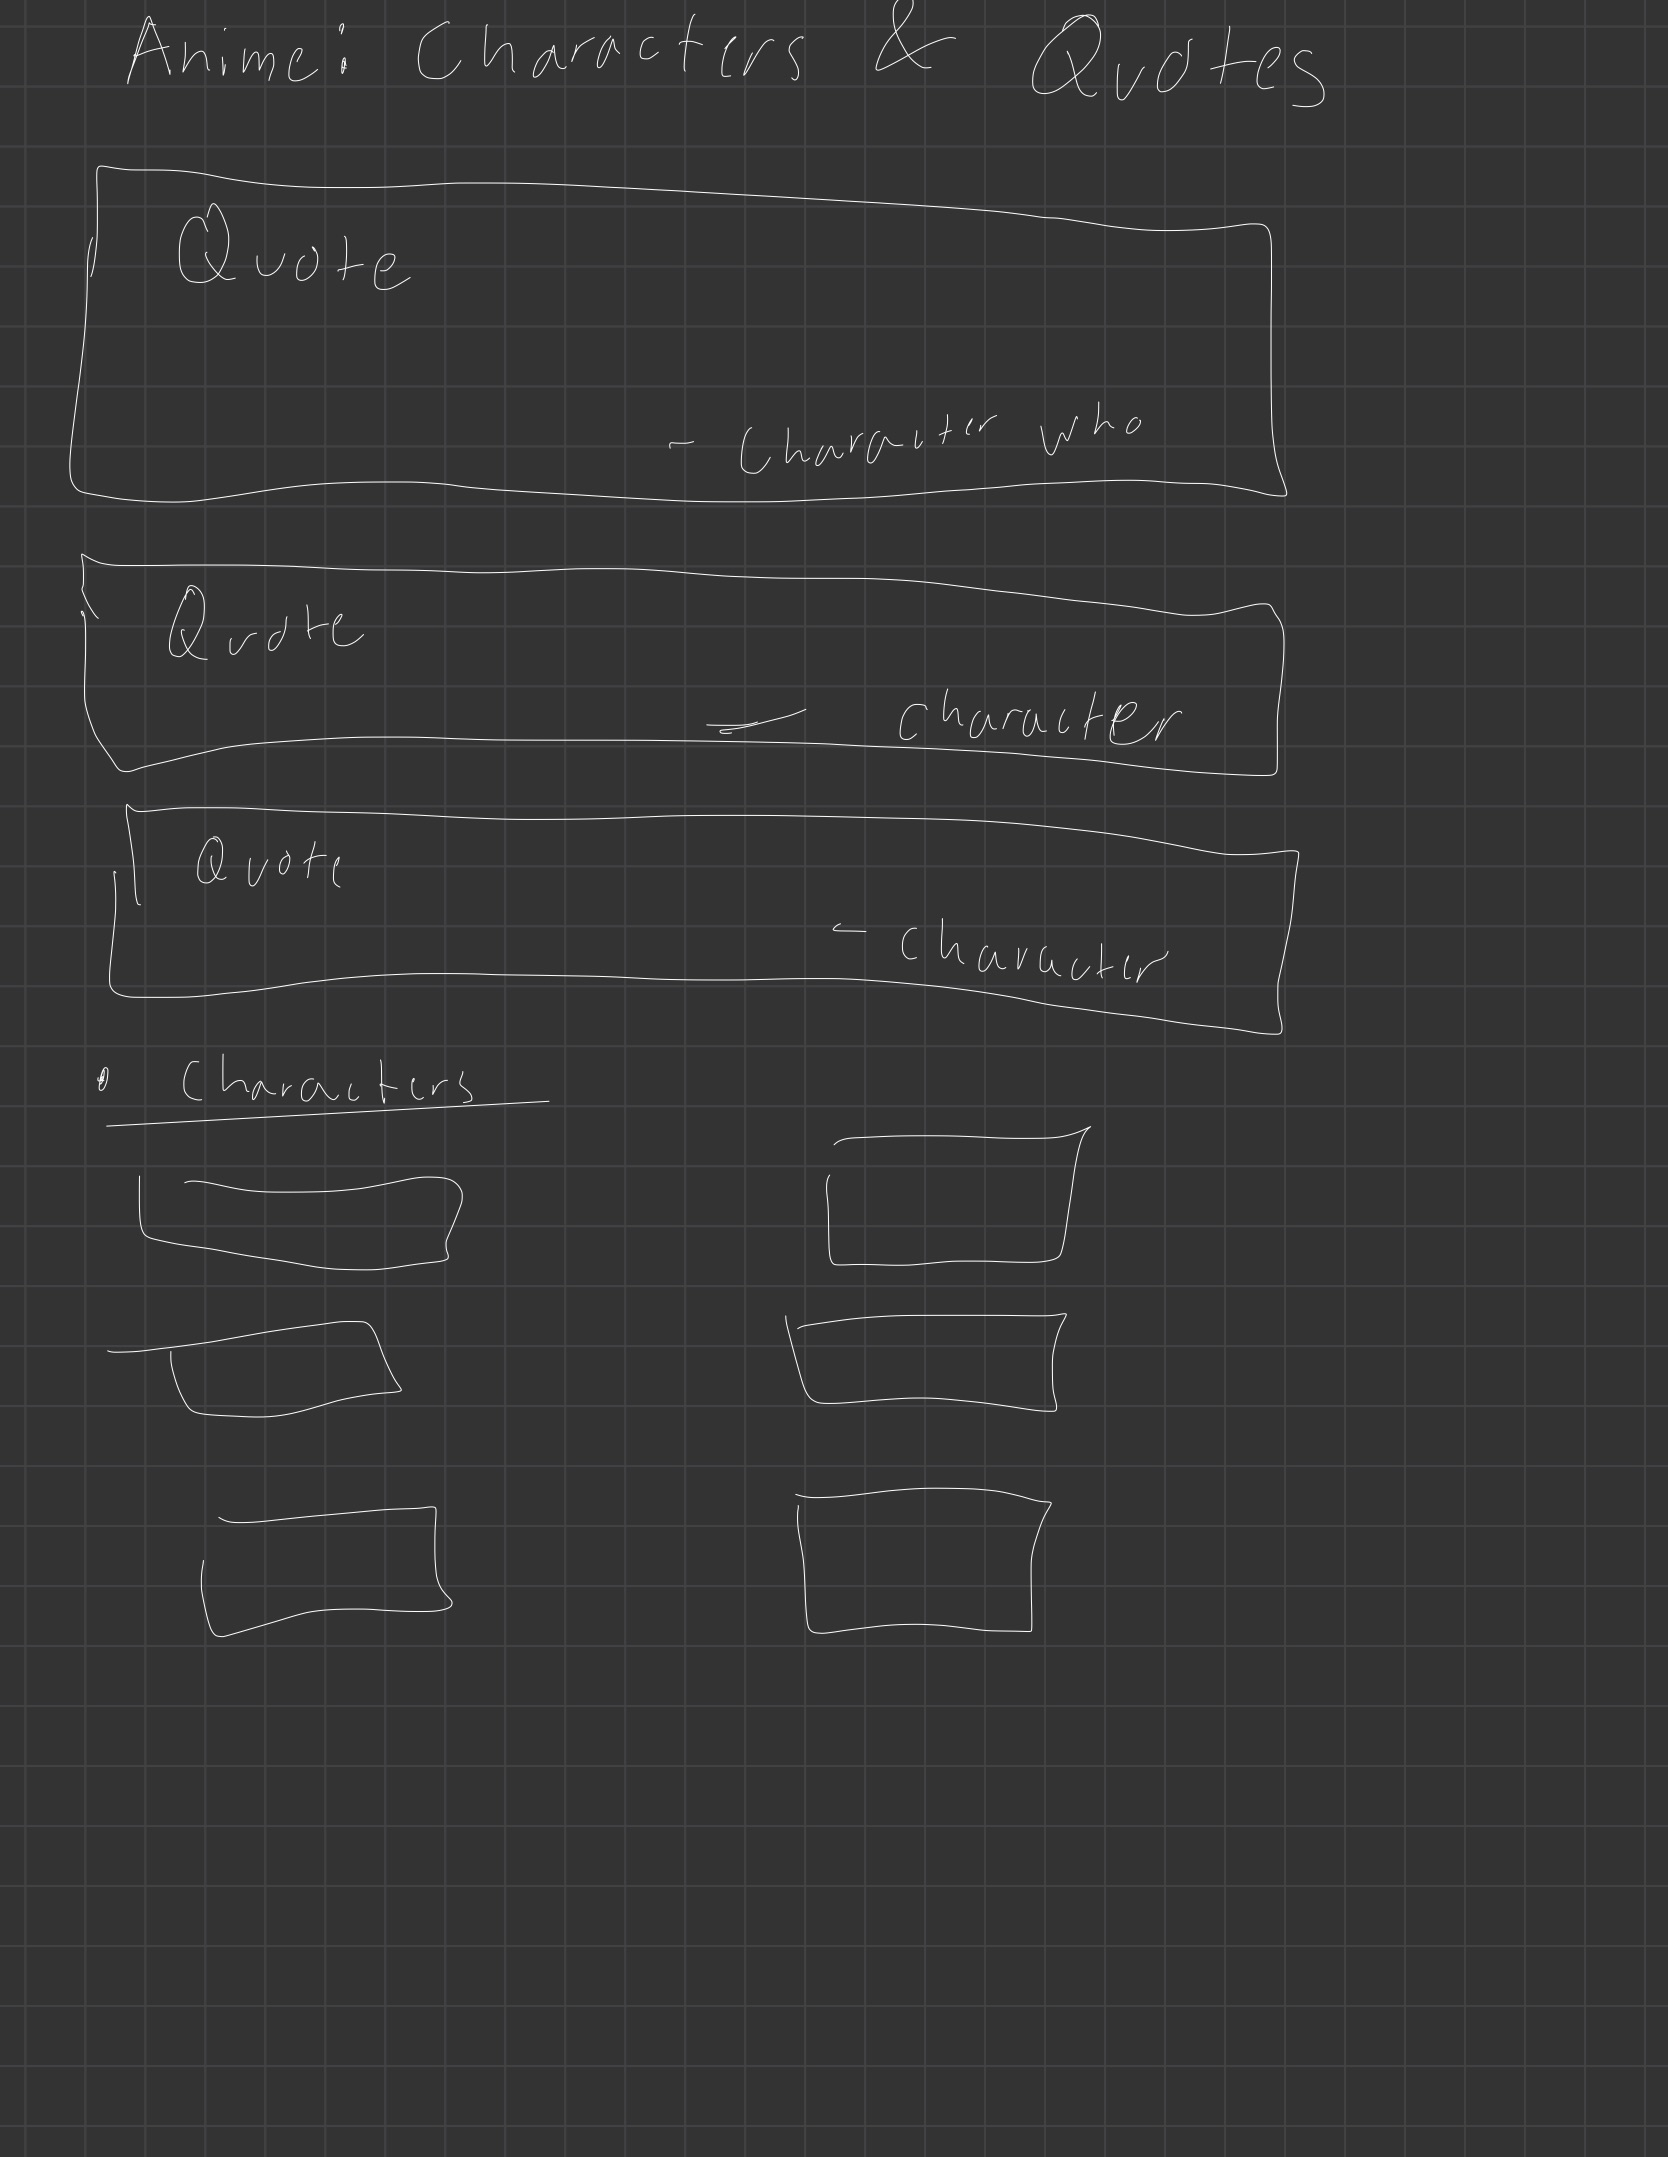 Anime: Characters & Quotes
Quote
- Character who
Quote
- character
Quote
- character
• Characters